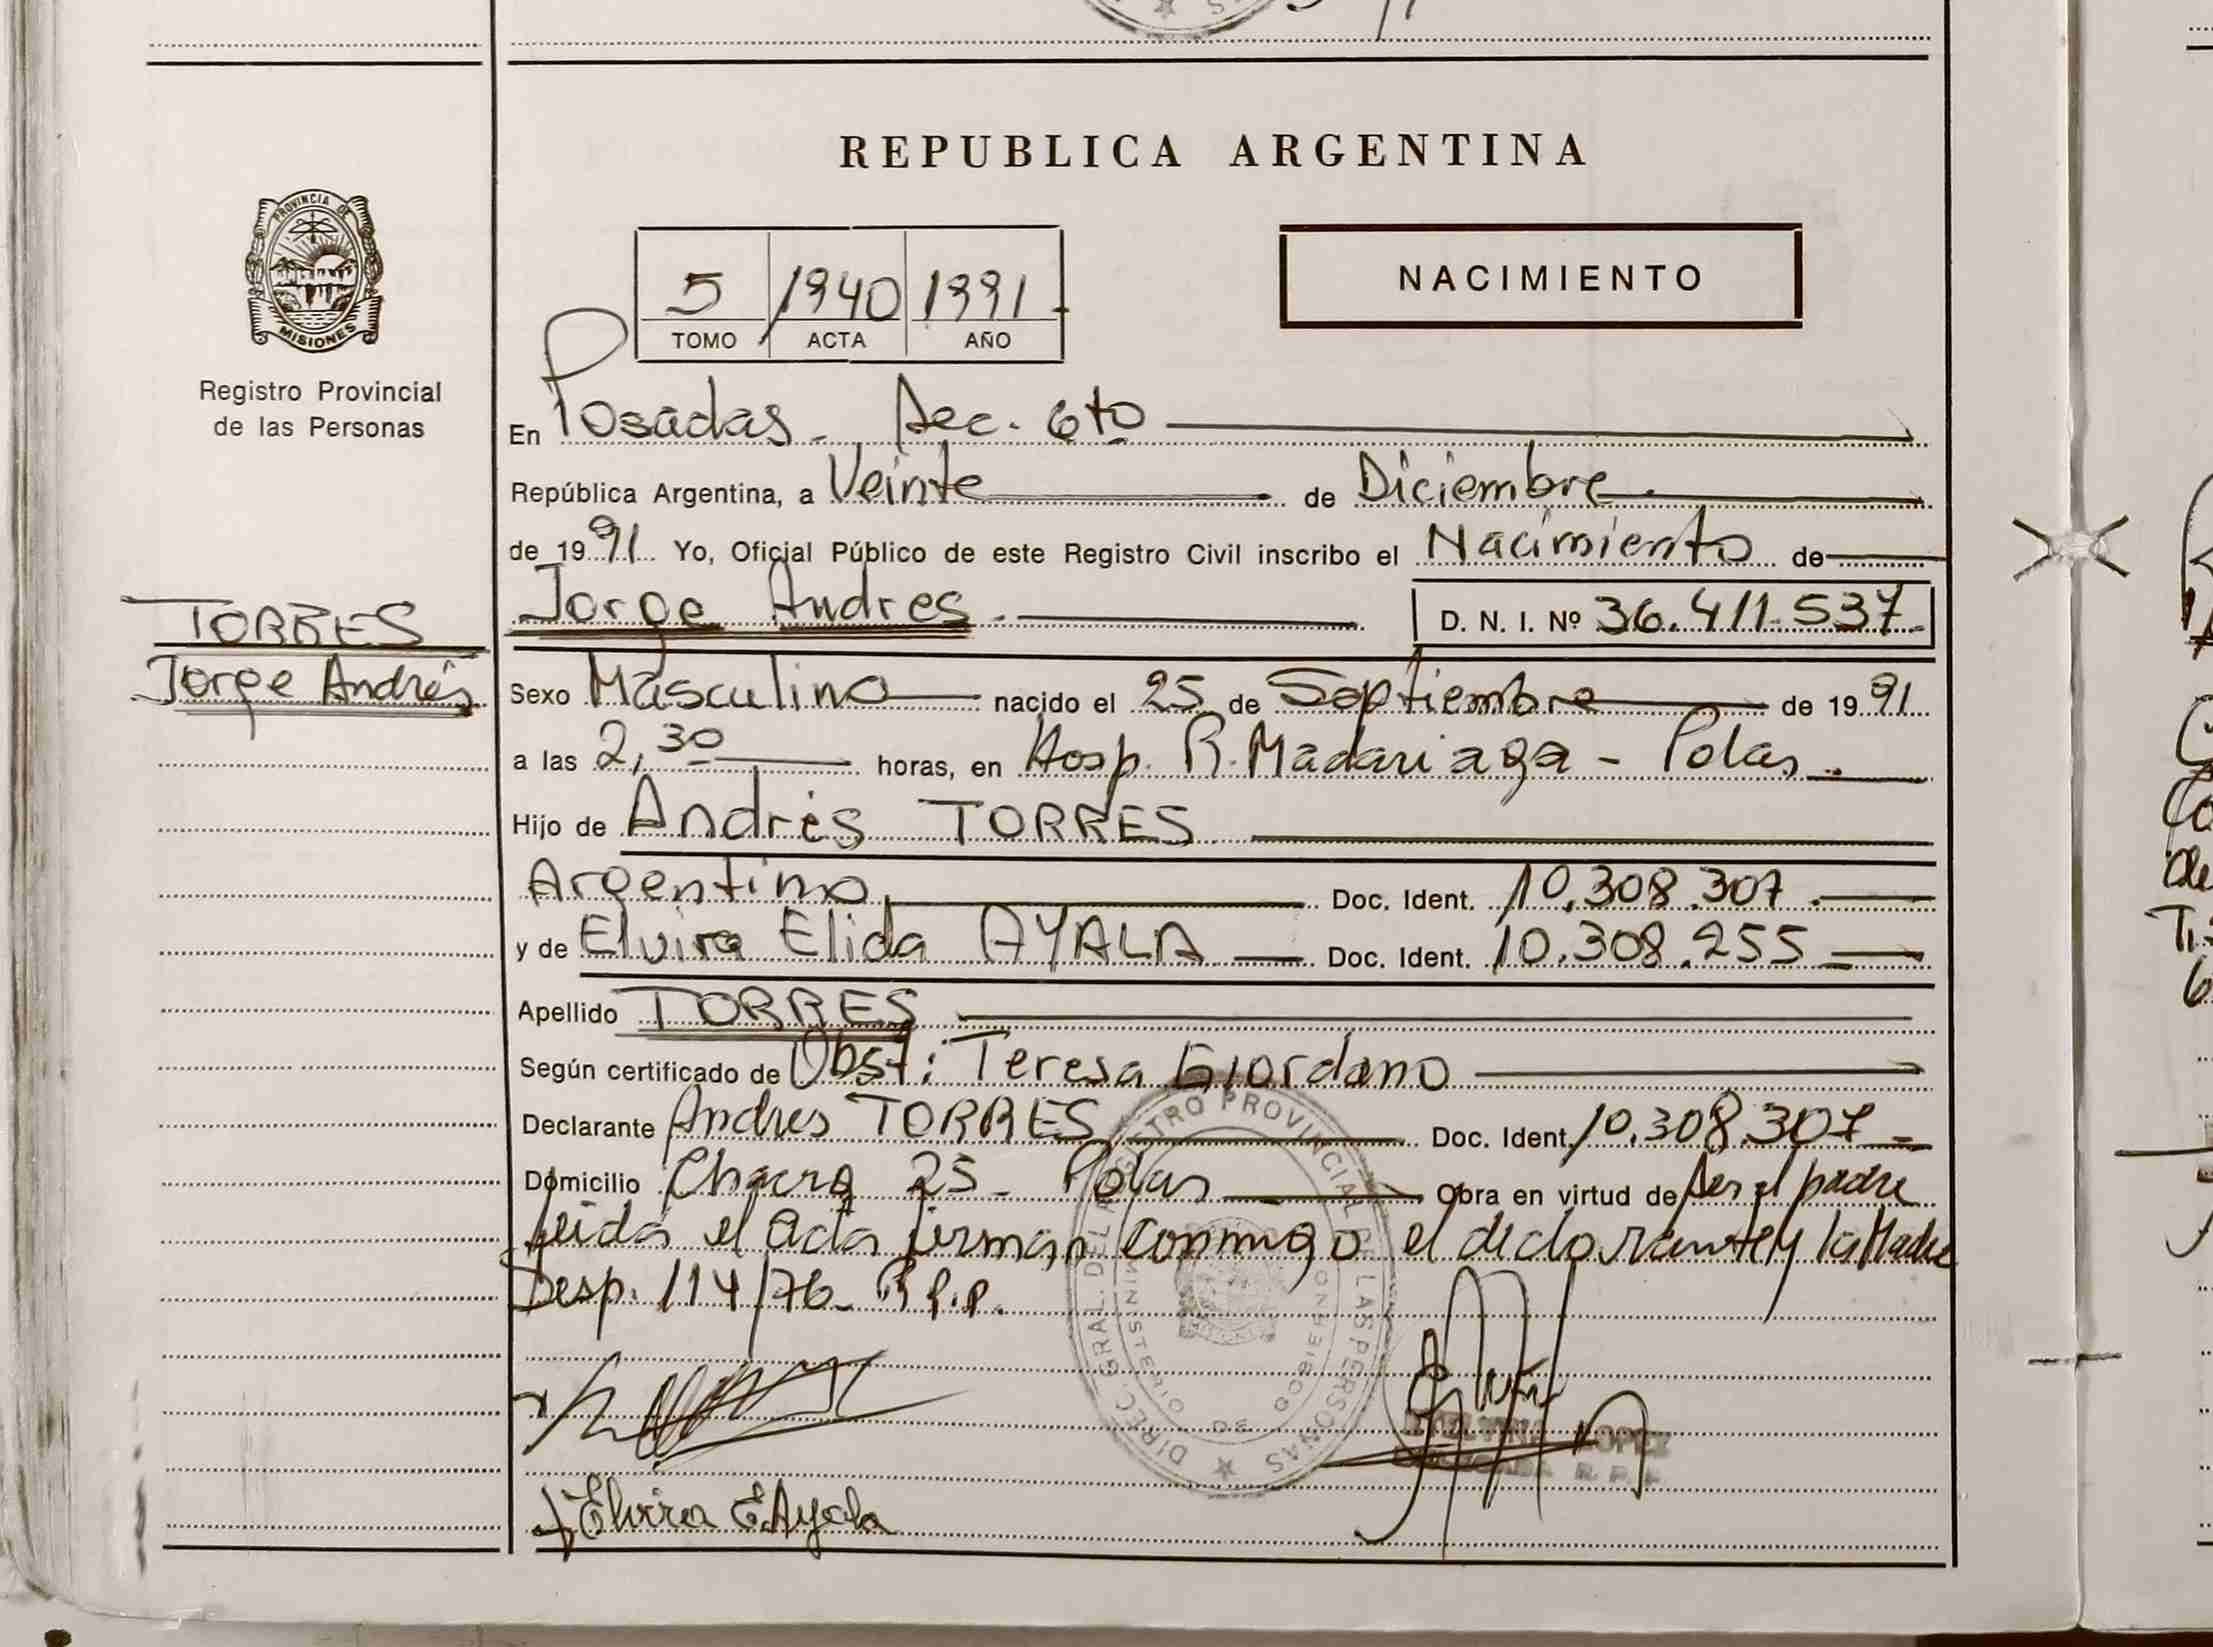 REPUBLICA ARGENTINA
PROVINCIA DE
MISIONES
Registro Provincial
de las Personas
5 1940 1991
TOMO ACTA AÑO
NACIMIENTO
En Posadas - Sec. 6to
República Argentina, a Veinte de Diciembre
de 1991 Yo, Oficial Público de este Registro Civil inscribo el Nacimiento de
TORRES
Jorge Andrés
Jorge Andres D. N. I. Nº 36.411.537
Sexo Masculino nacido el 25 de Septiembre de 1991
a las 2,30 horas, en Hosp. R. Madariaga - Pdas.
Hijo de Andrés TORRES
Argentino Doc. Ident. 10.308.307
y de Elvira Elida AYALA Doc. Ident. 10.308.255
Apellido TORRES
Según certificado de Obst: Teresa Giordano
Declarante Andres TORRES Doc. Ident. 10.308.307
Domicilio Chacra 25 - Pdas Obra en virtud de ser el padre
leida el acta firman conmigo el declarante y la Madre
Desp. 114/76 - R.P.P.
DIREC. GRAL. DEL REGISTRO PROVINCIAL DE LAS PERSONAS
MINISTERIO DE GOBIERNO
LOPEZ
R. P. P.
Elvira E Ayala